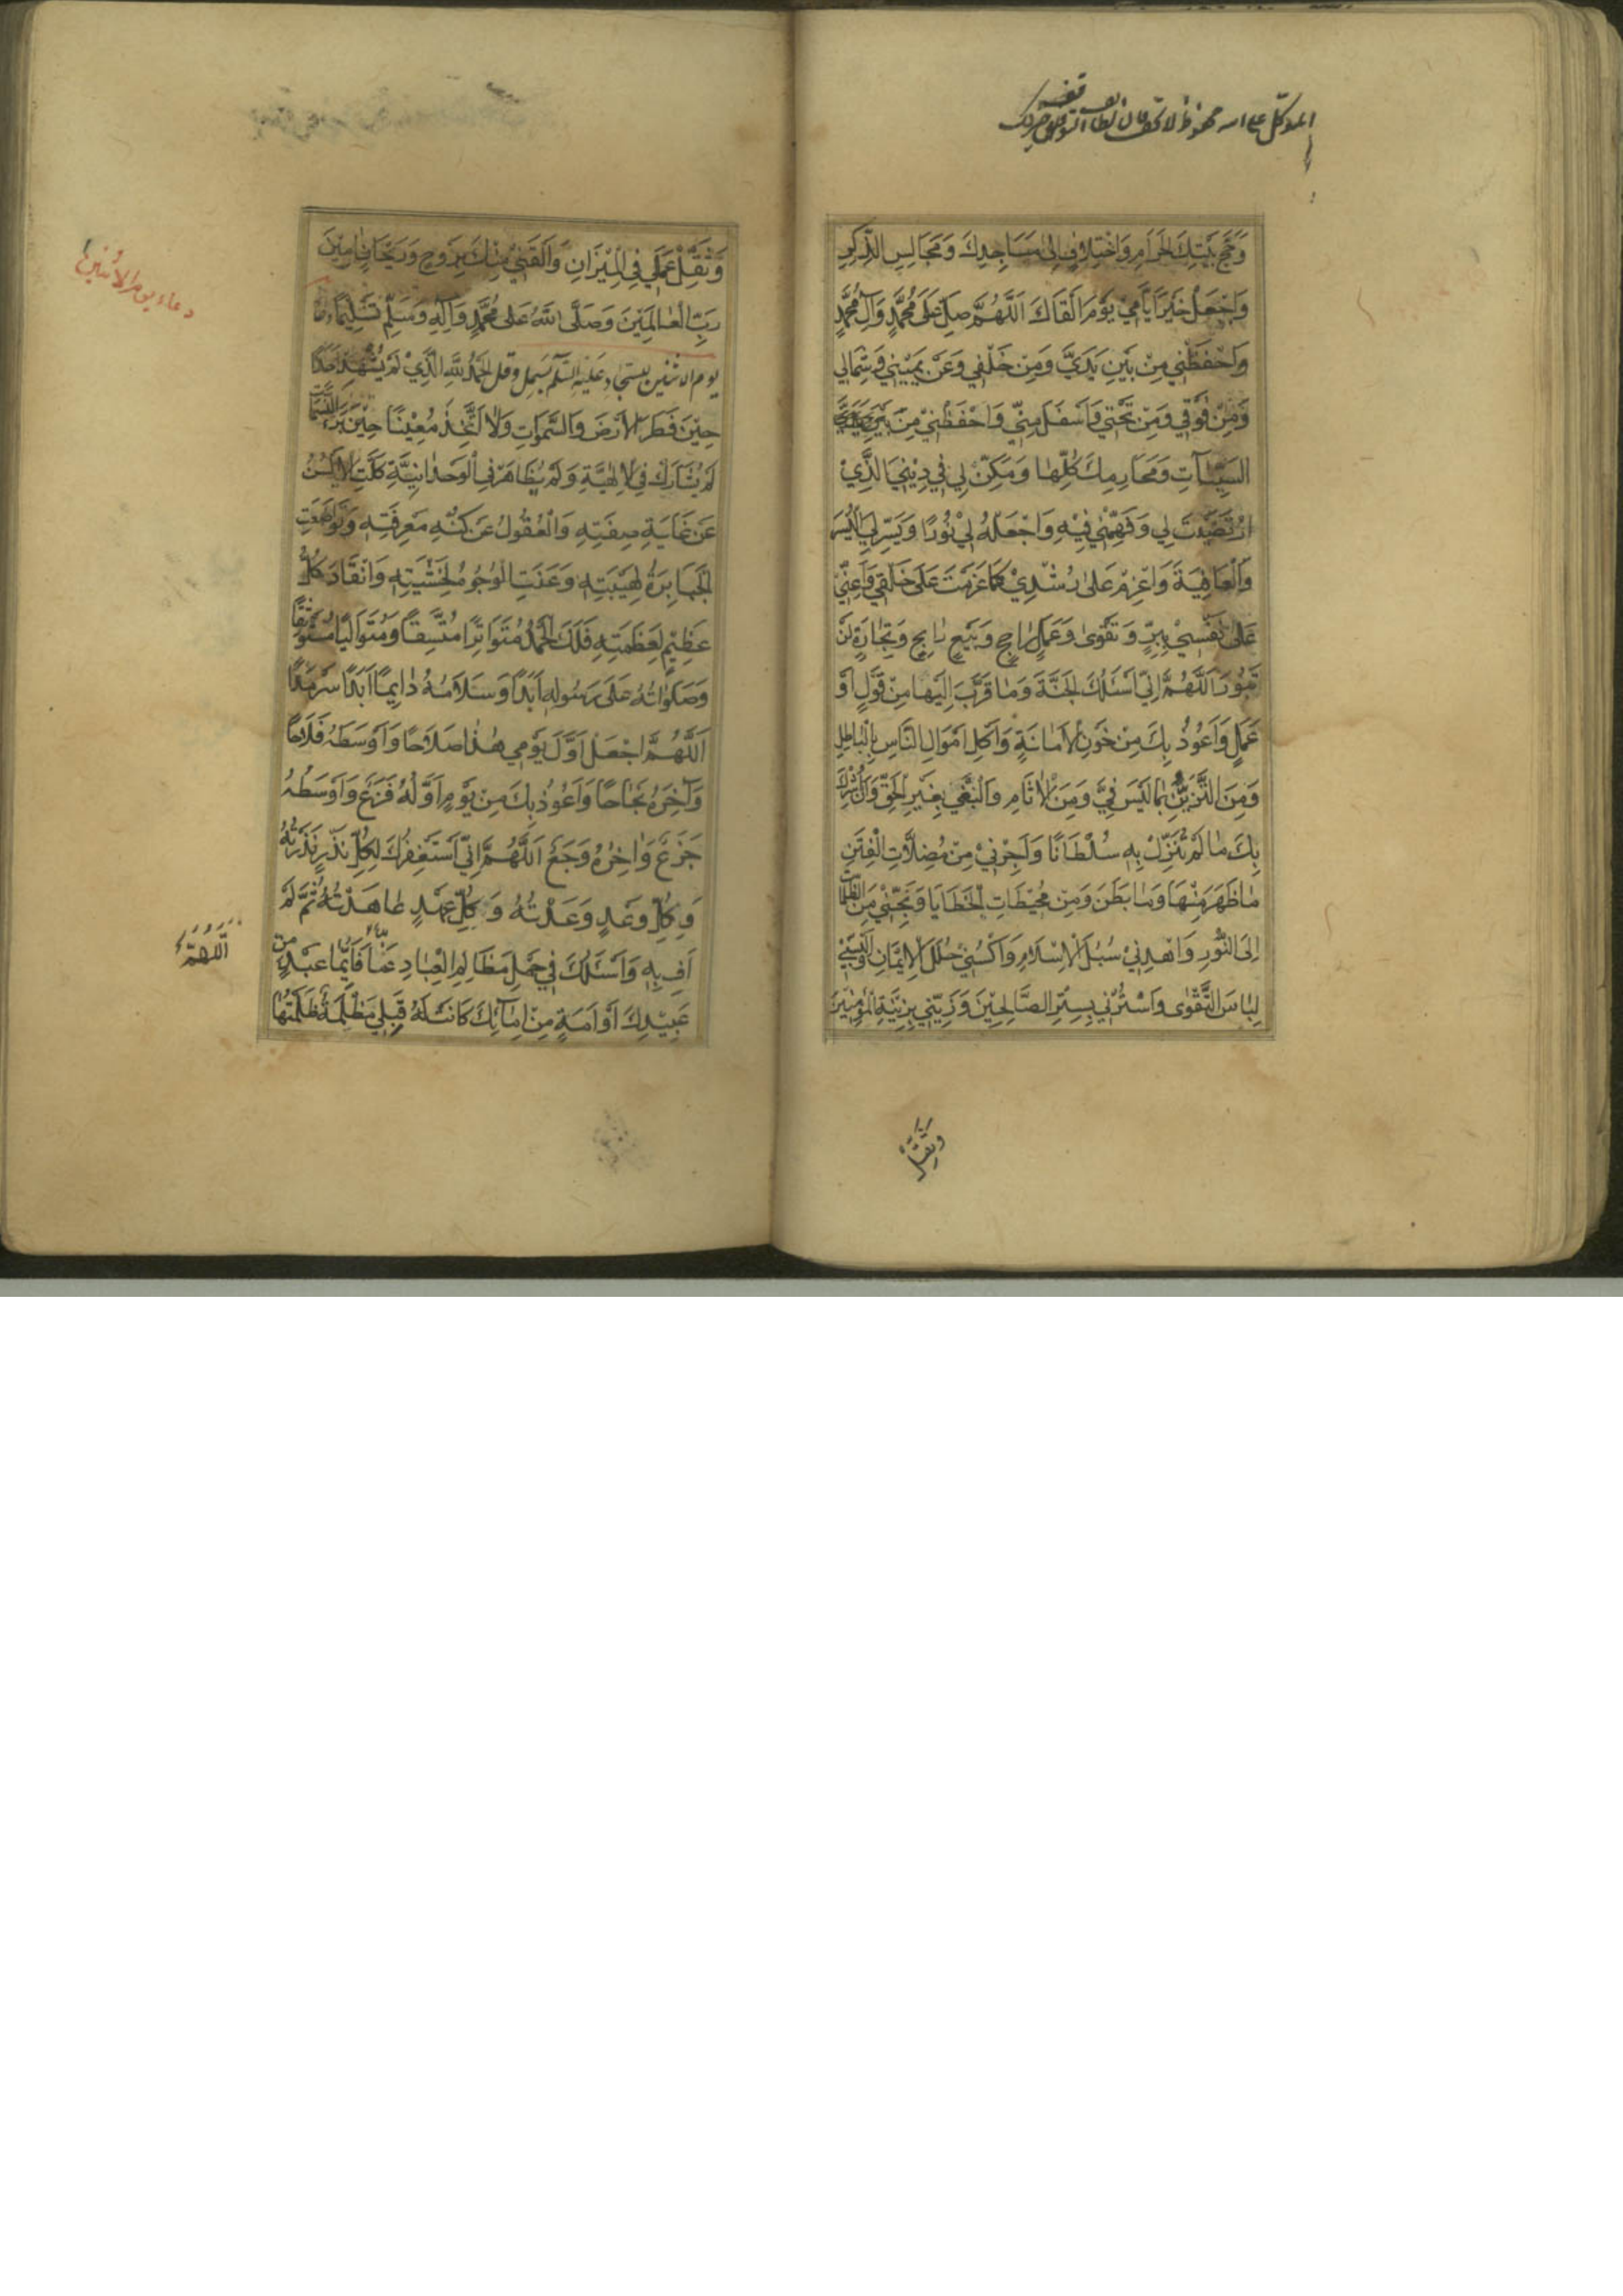 المتوكل على الله محفوظ
وَحَجِّ بَيْتِكَ الْحَرَامِ وَاخْتِلَافِي اِلىٰ مَسَاجِدِكَ وَمَجَالِسِ الذِّكْرِ
وَاجْعَلْ خَيْرَ اَيَّامِي يَوْمَ اَلْقَاكَ اَللّٰهُمَّ صَلِّ عَلىٰ مُحَمَّدٍ وَآلِ مُحَمَّدٍ
وَاحْفَظْنِي مِنْ بَيْنِ يَدَيَّ وَمِنْ خَلْفِي وَعَنْ يَمِيْنِي وَشِمَالِي
وَمِنْ فَوْقِي وَمِنْ تَحْتِي وَاَسْفَلَ مِنِّي وَاحْفَظْنِيْ مِنْ
السَّيِّئَاتِ وَمَحَارِمِكَ كُلِّهَا وَمَكِّنْ لِي فِي دِيْنِيَ الَّذِيْ
ارْتَضَيْتَ لِي وَفَهِّمْنِي فِيْهِ وَاجْعَلْهُ لِيْ نُوْرًا وَيَسِّرْ لِيَ الْيُسْرَ
وَالْعَافِيَةَ وَاعْزِمْ عَلىٰ رُشْدِيْ كَمَا عَزَمْتَ عَلىٰ خَلْقِي وَاَعِنِّيْ
عَلىٰ نَفْسِيْ بِبِرٍّ وَتَقْوىٰ وَعَمَلٍ رَاجِحٍ وَبَيْعٍ رَابِحٍ وَتِجَارَةٍ لَنْ
تَبُوْرَ اَللّٰهُمَّ اِنِّي اَسْئَلُكَ الْجَنَّةَ وَمَا قَرَّبَ اِلَيْهَا مِنْ قَوْلٍ اَوْ
عَمَلٍ وَاَعُوْذُ بِكَ مِنْ خَوْنِ الْاَمَانَةِ وَاَكْلِ اَمْوَالِ النَّاسِ بِالْبَاطِلِ
وَمِنَ التَّزَيُّنِ بِمَا لَيْسَ فِيَّ وَمِنَ الْاٰثَامِ وَالْبَغْيِ بِغَيْرِ الْحَقِّ وَاَنْ اُشْرِكَ
بِكَ مَا لَمْ تُنَزِّلْ بِهِ سُلْطَانًا وَاَجِرْنِيْ مِنْ مُضِلَّاتِ الْفِتَنِ
مَا ظَهَرَ مِنْهَا وَمَا بَطَنَ وَمِنْ مُحِيْطَاتِ الْخَطَايَا وَنَجِّنِي مِنَ الظُّلُمَاتِ
اِلَى النُّوْرِ وَاهْدِنِيْ سُبُلَ الْاِسْلَامِ وَاكْسُنِيْ حُلَلَ الْاِيْمَانِ وَاَلْبِسْنِيْ
لِبَاسَ التَّقْوىٰ وَاسْتُرْنِي بِسِتْرِ الصَّالِحِيْنَ وَزَيِّنِّي بِزِيْنَةِ الْمُؤْمِنِيْنَ
وَثَقِّلْ
وَثَقِّلْ عَمَلِي فِي الْمِيْزَانِ وَالْقَنِيْ مِنْكَ بِرَوْحٍ وَرَيْحَانٍ اٰمِيْنَ
رَبَّ الْعَالَمِيْنَ وَصَلَّى اللّٰهُ عَلىٰ مُحَمَّدٍ وَآلِهِ وَسَلِّمْ تَسْلِيْمًا دعاء
يوم الاثنين للسجاد عَلَيْهِ السَّلَم بسمل وقل اَلْحَمْدُ لِلّٰهِ الَّذِيْ لَمْ يُشْهِدْ اَحَدًا
حِيْنَ فَطَرَ الْاَرْضَ وَالسَّمٰوَاتِ وَلَا اتَّخَذَ مُعِيْنًا حِيْنَ بَرَءَ النَّسَمَاتِ
لَمْ يُشَارَكْ فِي الْاِلٰهِيَّةِ وَلَمْ يُظَاهَرْ فِي الْوَحْدَانِيَّةِ كَلَّتِ الْاَلْسُنُ
عَنْ غَايَةِ صِفَتِهِ وَالْعُقُوْلُ عَنْ كُنْهِ مَعْرِفَتِهِ وَتَوَاضَعَتِ
الْجَبَابِرَةُ لِهَيْبَتِهِ وَعَنَتِ الْوُجُوْهُ لِخَشْيَتِهِ وَانْقَادَ كُلُّ
عَظِيْمٍ لِعَظَمَتِهِ فَلَكَ الْحَمْدُ مُتَوَاتِرًا مُتَّسِقًا وَمُتَوَالِيًا مُسْتَوْثِقًا
وَصَلَوَاتُهُ عَلىٰ رَسُوْلِهِ اَبَدًا وَسَلَامُهُ دَائِمًا اَبَدًا سَرْمَدًا
اَللّٰهُمَّ اجْعَلْ اَوَّلَ يَوْمِي هٰذَا صَلَاحًا وَاَوْسَطَهُ فَلَاحًا
وَآخِرَهُ نَجَاحًا وَاَعُوْذُ بِكَ مِنْ يَوْمٍ اَوَّلُهُ فَزَعٌ وَاَوْسَطُهُ
جَزَعٌ وَاٰخِرُهُ وَجَعٌ اَللّٰهُمَّ اِنِّي اَسْتَغْفِرُكَ لِكُلِّ نَذْرٍ نَذَرْتُهُ
وَكُلِّ وَعْدٍ وَعَدْتُهُ وَكُلِّ عَهْدٍ عَاهَدْتُهُ ثُمَّ لَمْ
اَفِ بِهِ وَاَسْئَلُكَ فِي حَمْلِ مَظَالِمِ الْعِبَادِ عَنَّا فَاَيُّمَا عَبْدٍ مِنْ
عَبِيْدِكَ اَوْ اَمَةٍ مِنْ اِمَائِكَ كَانَتْ لَهُ قِبَلِي مَظْلِمَةٌ ظَلَمْتُهَا
دعاء يوم الاثنين
اَللّٰهُمَّ